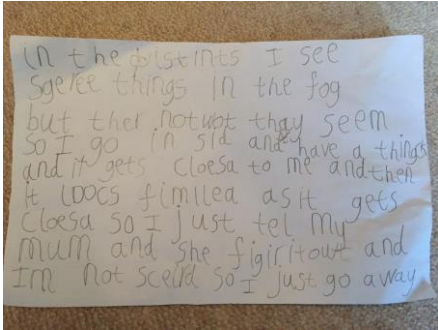 in the distints I see
sgelee things in the fog
but ther notwot thay seem
So I go in sid and they have a things
and it gets cloesa to me and then
it LOOCS fimllea as it gets
Cloesa so I just tel My
mum and she figiritout and
Im not sceird so I just go away